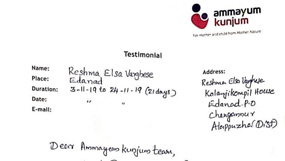 ammayum
kunjum
For mother and child from Mother Nature
Testimonial
Name: Reshma Elsa Varghese
Place: Edanad
Duration: 3-11-19 to 24-11-19 (21 days)
Date: "    "
E-mail:
Address:
Reshma Elsa Varghese
House
Edanad P.O
Chengannur
Alappuzha (Dist)
Dear Ammayum Kunjum team,